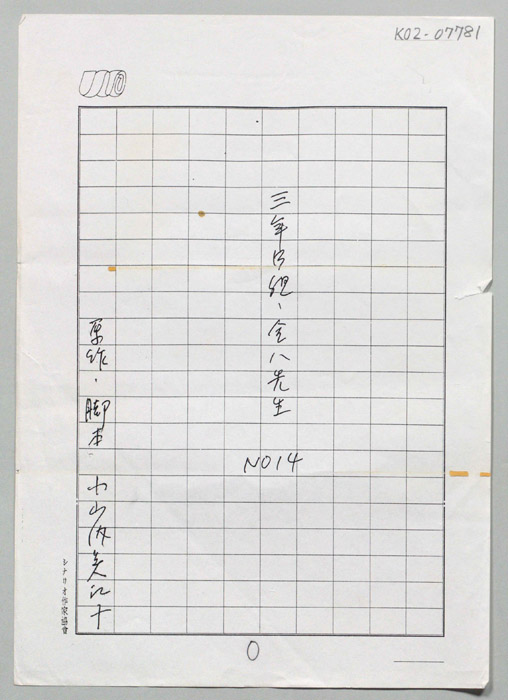 K02-07781
三年B組、金八先生
NO14
原作・脚本 小山内美江子
シナリオ作家協會
0